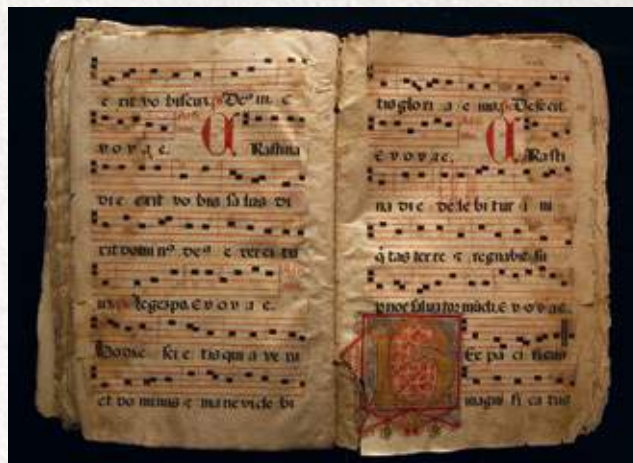 e rit vo biscum. Deus in. e
v o v a e. CRastina
di e erit vo bis sa lus di
cit domi nus deus e xerci tu
um. e v o v a e.
Hodie sci e tis qui a ve ni
et do minus et mane vide bi
tis glori a e ius. De
e v o v a e. CRasti
na di e de le bi tur i ni
q̃ tas terre et regnabit su
p nos salvator mũdi. e v o v a e.
REx pa ci ficus
magni fi ca tus